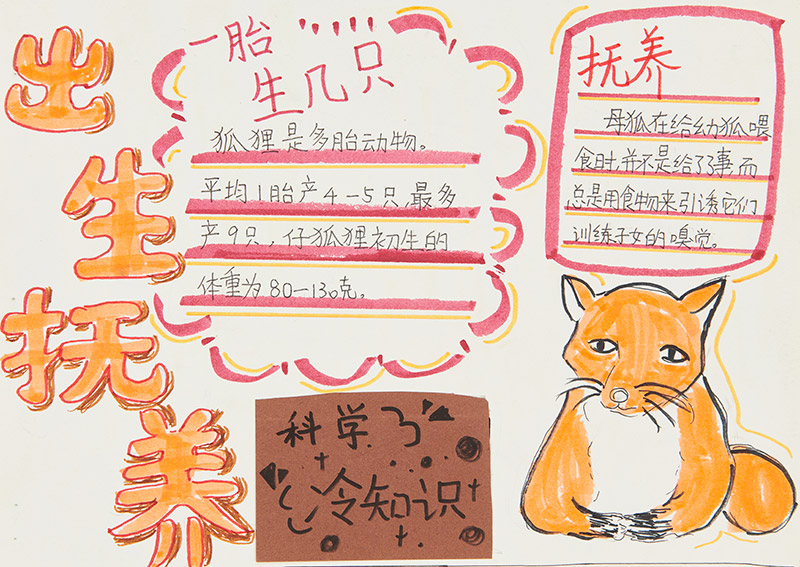 出
生
抚
养
一胎
生几只
狐狸是多胎动物。
平均1胎产4-5只,最多
产9只,仔狐狸初生的
体重为80-130克。
抚养
母狐在给幼狐喂
食时并不是给了了事而
总是用食物来引诱它们
训练子女的嗅觉。
科学了
冷知识